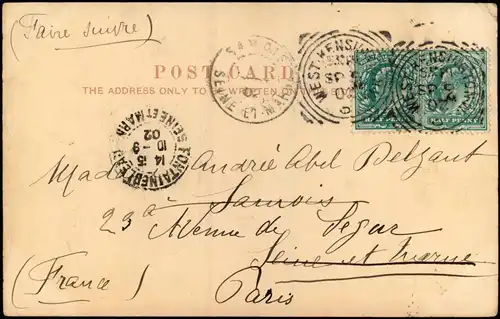 (Faire suivre)
POST CARD
THE ADDRESS ONLY TO BE WRITTEN
WEST KENSINGTON
SEINE ET MARNE
HALF PENNY
HALF PENNY
FONTAINEBLEAU
SEINE ET MARNE
14 15
10 - 9
02
Madame André Abel
Samois
23 Avenue de Ségur
Seine et Marne
(France)
Paris